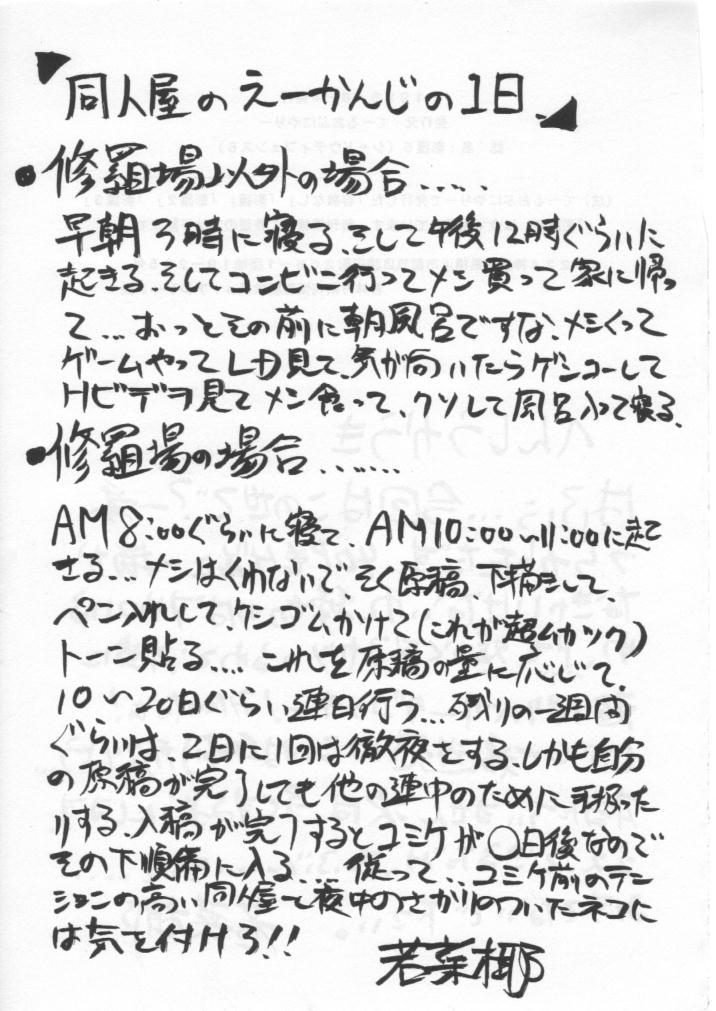 同人屋のえーかんじの1日
・修羅場以外の場合.....
早朝3時に寝る、そして午後12時ぐらいに
起きる、そしてコンビニ行ってメシ買って家に帰っ
て...おっとその前に朝風呂ですな、メシくって
ゲームやってLD見て、気が向いたらゲンコーして
Hビデヲ見てメシ食って、クソして風呂入って寝る、
・修羅場の場合.......
AM8:00ぐらいに寝て、AM10:00〜11:00に起
きる...メシはくわないでそく原稿、下描きして、
ペン入れして、ケシゴムかけて(これが超ムカツク)
トーン貼る.... これを原稿の量に応じて、
10〜20日ぐらい連日行う...残りの一週間
ぐらいは、2日に1回は徹夜をする、しかも自分
の原稿が完了しても他の連中のために手扱った
りする、入稿が完了するとコミケが〇日後なので
その下準備に入る.... 従って...コミケ前のテン
ションの高い同人屋と夜中のさかりのついたネコに
は気を付けろ!!
若菜椰